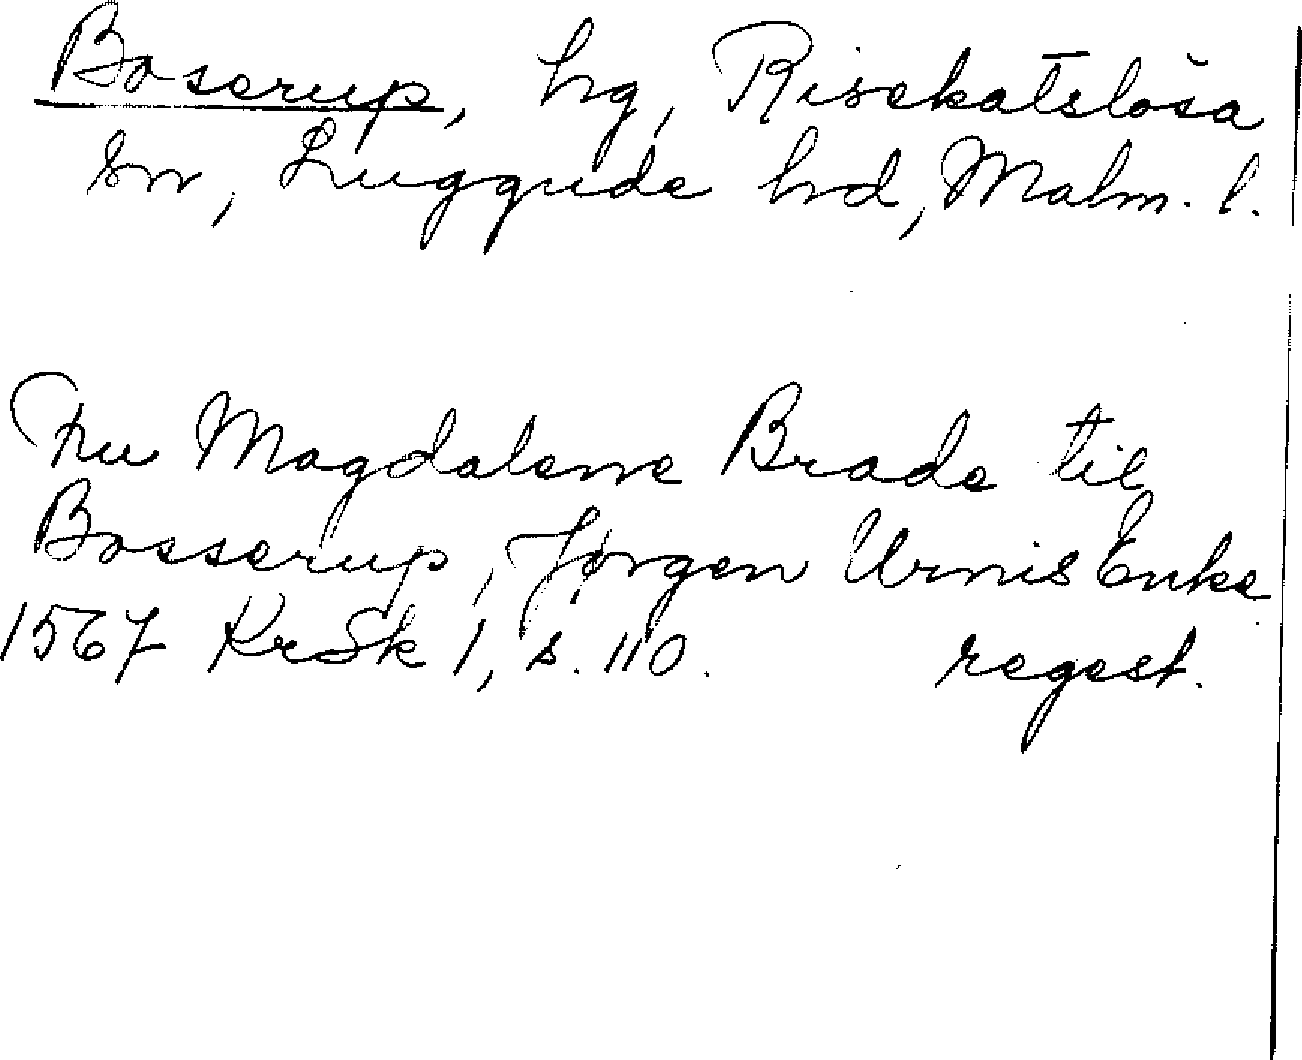 Boserup, hg, Risekatslösa
sn, Luggude hd, Malm. l.
Fru Magdalene Brade til
Bosserup, Jørgen Urnis Enke
1567 KrSk 1, s. 110. regest.